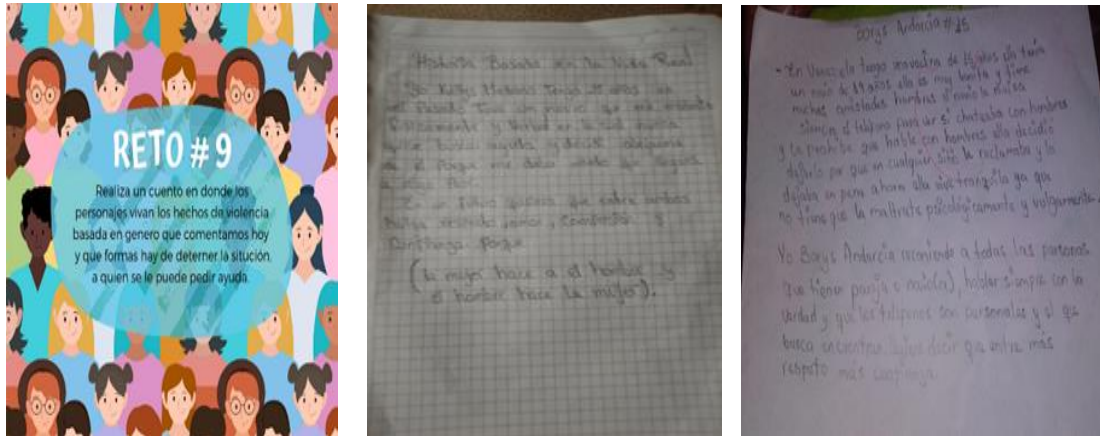 RETO # 9
Realiza un cuento en donde los
personajes vivan los hechos de violencia
basada en genero que comentamos hoy
y que formas hay de deterner la situción,
a quien se le puede pedir ayuda.
Historia Basada en la Vida Real
Yo Tengo años
el Pasado Tuve un novio que me
Fisicamente y Verbal
buscar ayuda y decidí
a el Porque
a
En futuro quisiera que entre ambos
haiga respeto, amor, y
Confianza Porque
(la mujer hace a el hombre y
el hombre hace la mujer).
Borys Andarcia # 15
- En Venezuela tengo una de años ella tenía
un novio de 19 años ella es muy bonita y tiene
muchas amistades hombres el novio la
siempre el teléfono para ver si chateaba con hombres
y la prohibía que hable con hombres ella decidió
dejarlo por que en cualquier sitio la reclamaba y la
dejaba en pena ahora ella vive tranquila ya que
no tiene que la maltrate psicológicamente y vulgarmente.
Yo Borys Andarcia recomiendo a todas las personas
que tienen pareja o novio(a), hablar siempre con la
verdad y que los teléfonos son personales y el que
busca encuentra decir que entre más
respeto más confianza.